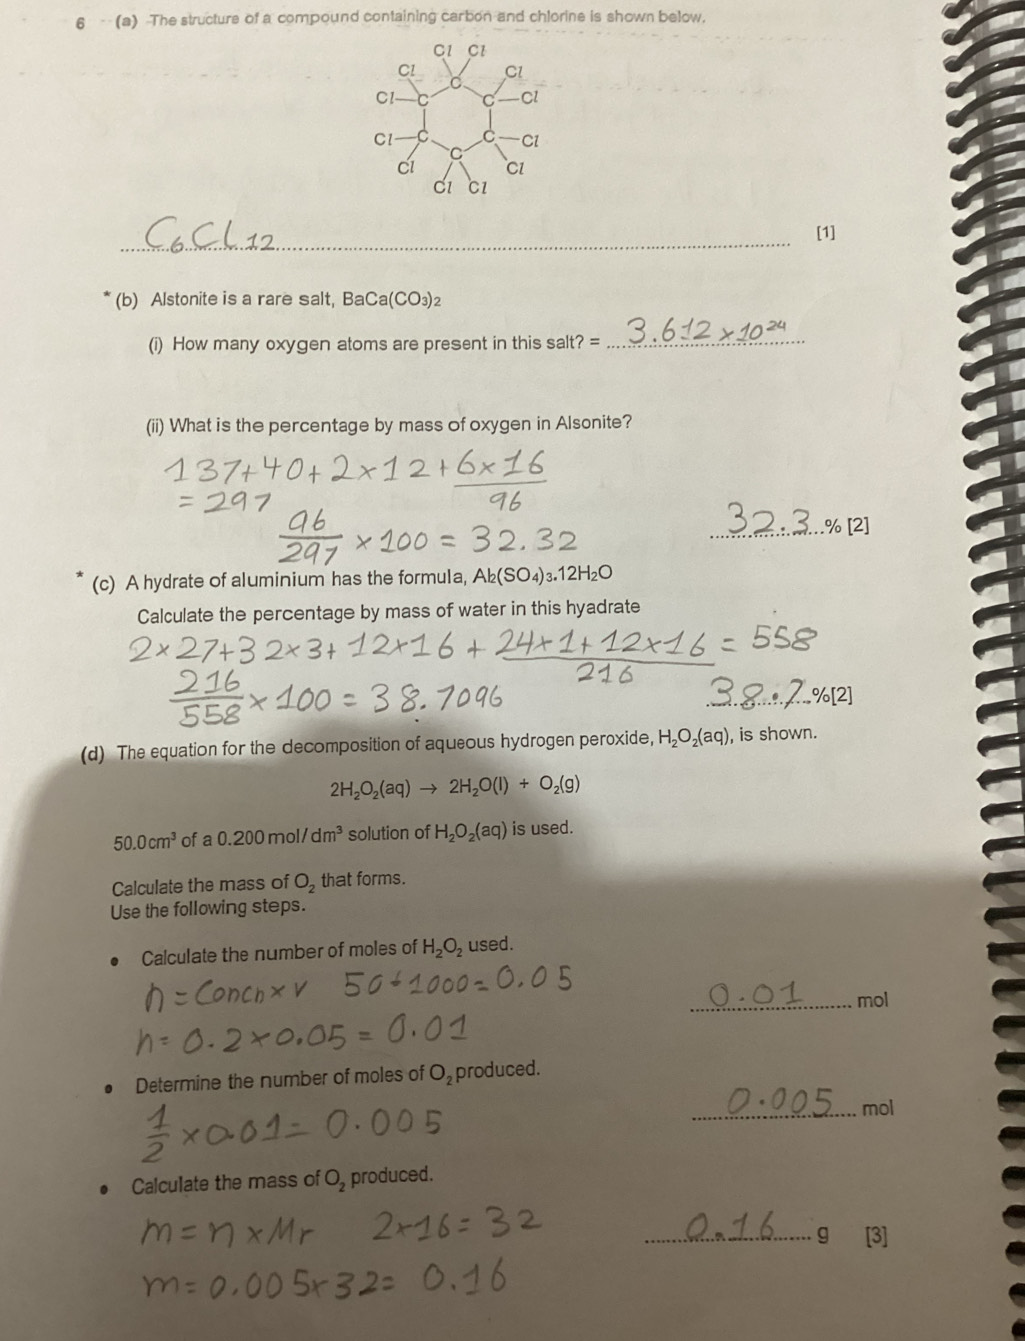 6 (a) The structure of a compound containing carbon and chlorine is shown below.
Cl Cl
Cl C Cl
Cl—C C—Cl
Cl—C C—Cl
Cl C Cl
Cl Cl
C6Cl12 [1]
* (b) Alstonite is a rare salt, BaCa(CO3)2
(i) How many oxygen atoms are present in this salt? = 3.612 × 10²⁴
(ii) What is the percentage by mass of oxygen in Alsonite?
137+40+2×12+6×16
= 297 96
96/297 × 100 = 32.32 32.3 % [2]
* (c) A hydrate of aluminium has the formula, Al2(SO4)3.12H2O
Calculate the percentage by mass of water in this hyadrate
2×27+32×3+12×16+24×1+12×16 = 558
216
216/558 × 100 = 38.7096 38.7 %[2]
(d) The equation for the decomposition of aqueous hydrogen peroxide, H₂O₂(aq), is shown.
2H₂O₂(aq) → 2H₂O(l) + O₂(g)
50.0cm³ of a 0.200mol/dm³ solution of H₂O₂(aq) is used.
Calculate the mass of O₂ that forms.
Use the following steps.
• Calculate the number of moles of H₂O₂ used.
n = Concn × v 50÷1000=0.05
0.01 mol
n = 0.2×0.05 = 0.01
• Determine the number of moles of O₂ produced.
0.005 mol
1/2 ×0.01= 0.005
• Calculate the mass of O₂ produced.
m = n × Mr 2×16=32 0.16 g [3]
m=0.005×32= 0.16